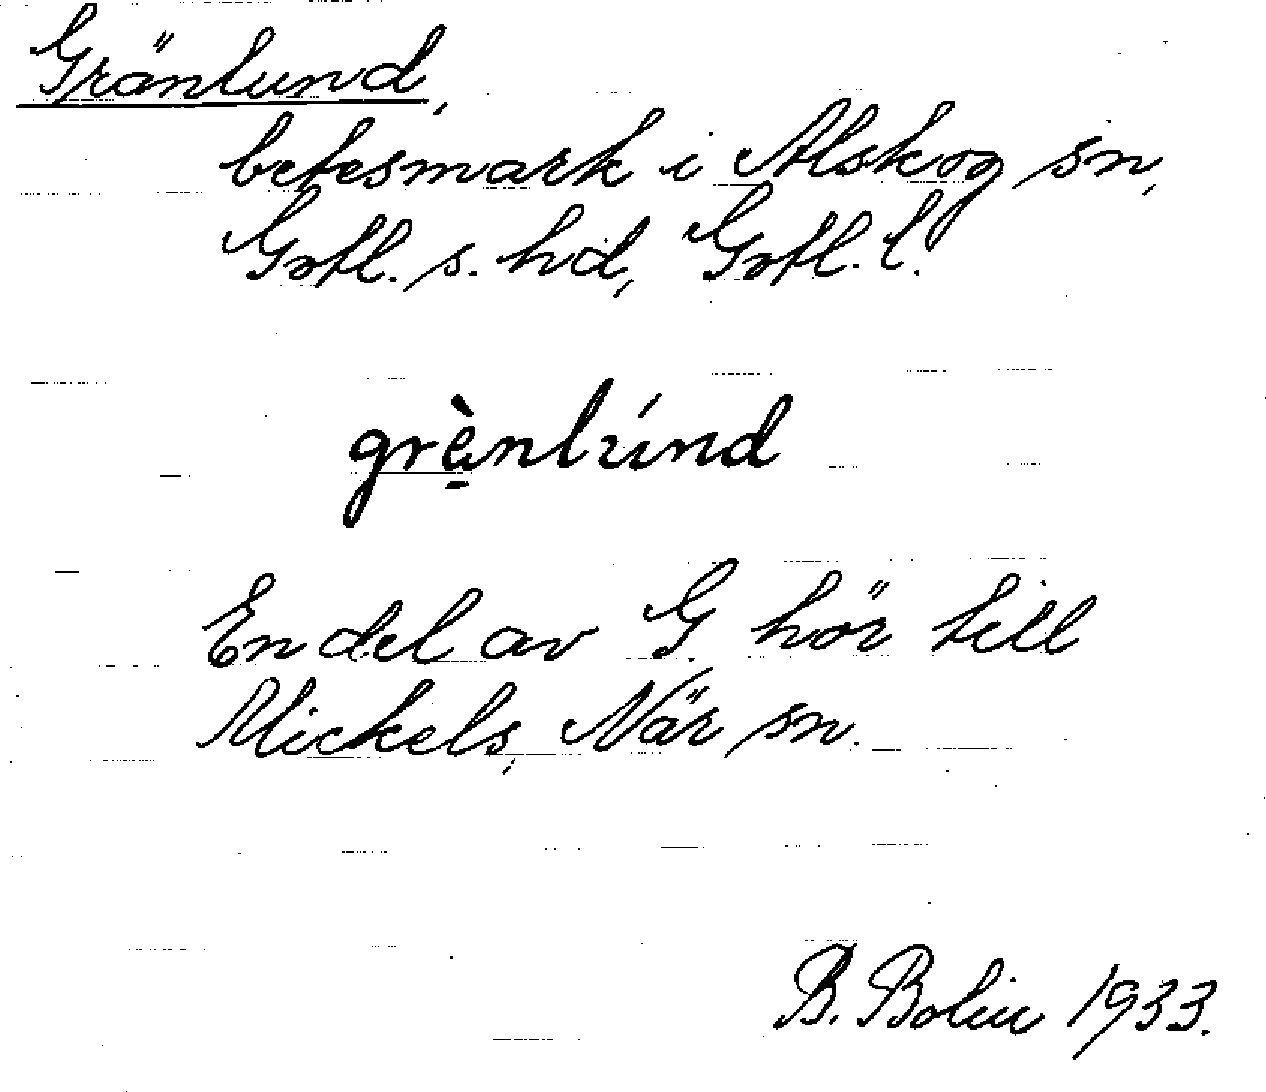 Gränlund,
betesmark i Alskog sn,
Gotl. s. hd, Gotl. l.
grènlúnd
En del av G. hör till
Mickels, När sn.
B. Bolin 1933.